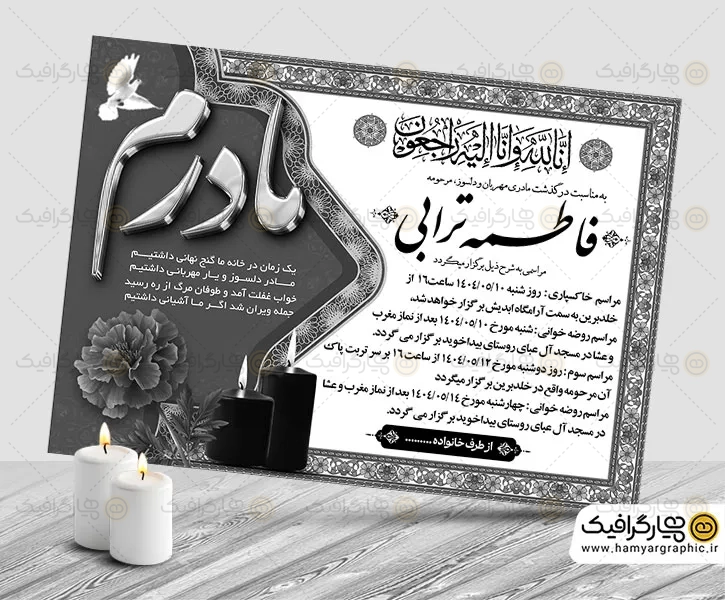 مادرم
یک زمان در خانه ما گنج نهانی داشتیم
مادر دلسوز و یار مهربانی داشتیم
خواب غفلت آمد و طوفان مرگ از ره رسید
جمله ویران شد اگر ما آشیانی داشتیم
انا لله و انا الیه راجعون
به مناسبت درگذشت مادری مهربان و دلسوز، مرحومه
فاطمه ترابی
مراسمی به شرح ذیل برگزار میگردد
مراسم خاکسپاری: روز شنبه ۱۴۰۴/۰۵/۱۰ ساعت ۱۶ از
خلدبرین به سمت آرامگاه ابدیش برگزار خواهد شد،
مراسم روضه خوانی: شنبه مورخ ۱۴۰۴/۰۵/۱۰ بعد از نماز مغرب
و عشا در مسجد آل عبای روستای بیداخوید برگزار می گردد.
مراسم سوم: روز دوشنبه مورخ ۱۴۰۴/۰۵/۱۲ از ساعت ۱۶ بر سر تربت پاک
آن مرحومه واقع در خلدبرین برگزار میگردد
مراسم روضه خوانی: چهارشنبه مورخ ۱۴۰۴/۰۵/۱۴ بعد از نماز مغرب و عشا
در مسجد آل عبای روستای بیداخوید برگزار می گردد.
از طرف خانواده ..........
همیارگرافیک
www.hamyargraphic.ir